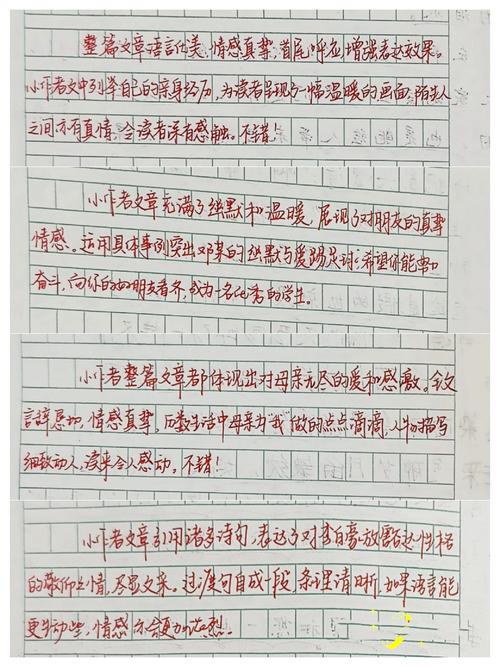 整篇文章语言优美,情感真挚,首尾呼应,增强表达效果。
小作者文中列举自己的亲身经历,为读者呈现了一幅温暖的画面,陌生人
之间亦有真情,令读者深有感触。不错!
小作者文章充满了幽默和温暖,展现了对朋友的真挚
情感。运用具体事例突出邓某的幽默与爱踢足球;希望你能努力
奋斗,向你的好朋友看齐,成为一名优秀的学生。
小作者整篇文章都体现出对母亲无尽的爱和感激。全文
言辞恳切,情感真挚,历数生活中母亲为“我”做的点点滴滴,人物描写
细致动人,读来令人感动。不错!
小作者文章引用诸多诗句,表达了对李白豪放豁达性格
的敬仰之情,尽显文采。过渡句自成一段,条理清晰,如果语言能
更生动些,情感亦会更加浓烈!